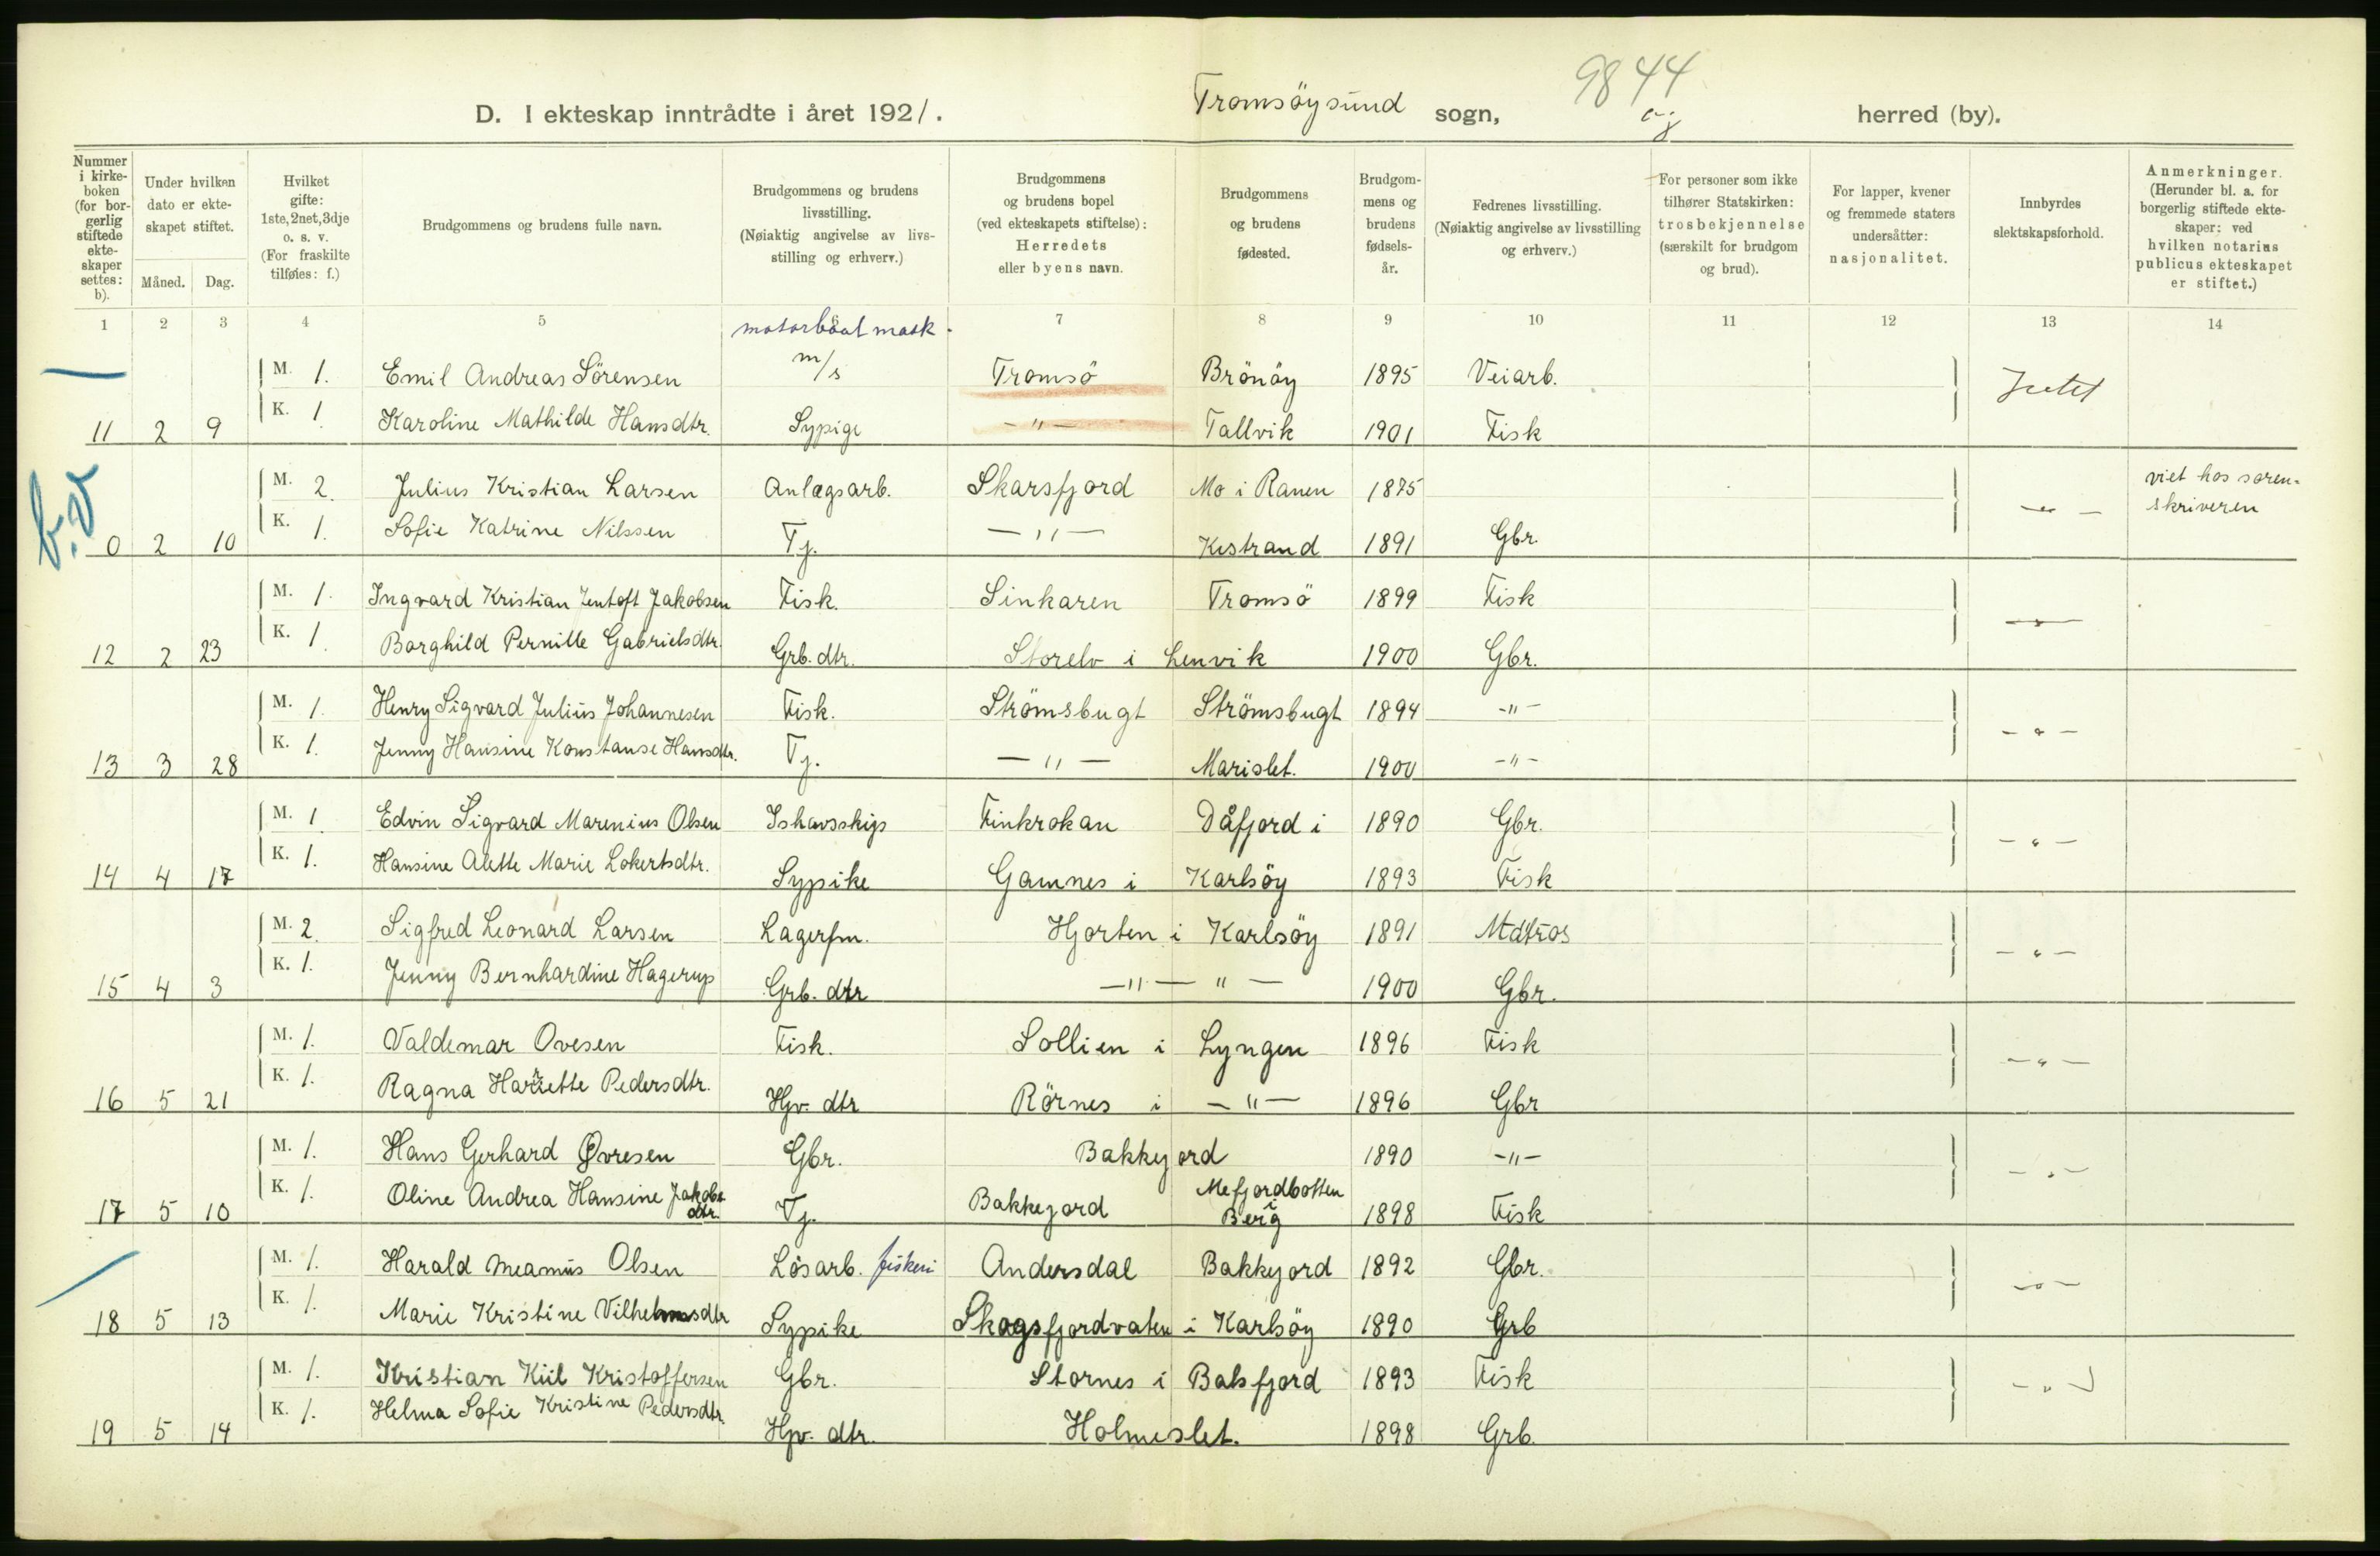 9844
D. I ekteskap inntrådte i året 1921. Tromsöysund sogn, herred (by).
Nummer i kirke-boken (for bor-gerlig stiftede ekte-skaper settes: b).
Under hvilken dato er ekte-skapet stiftet.
Måned. Dag.
Hvilket gifte: 1ste, 2net, 3dje o. s. v. (For fraskilte tilføies: f.)
Brudgommens og brudens fulle navn.
Brudgommens og brudens livsstilling. (Nøiaktig angivelse av livs-stilling og erhverv.)
Brudgommens og brudens bopel (ved ekteskapets stiftelse): Herredets eller byens navn.
Brudgommens og brudens fødested.
Brudgom-mens og brudens fødsels-år.
Fedrenes livsstilling. (Nøiaktig angivelse av livsstilling og erhverv.)
For personer som ikke tilhører Statskirken: trosbekjennelse (særskilt for brudgom og brud).
For lapper, kvener og fremmede staters undersåtter: nasjonalitet.
Innbyrdes slektskapsforhold.
Anmerkninger. (Herunder bl. a. for borgerlig stiftede ekte-skaper: ved hvilken notarius publicus ekteskapet er stiftet.)
1 2 3 4 5 6 7 8 9 10 11 12 13 14
motorbåat mask.
M. 1. Emil Andreas Sörensen m/s Tromsö Brönöy 1895 Veiarb. Intet
11 2 9 K. 1 Karoline Mathilde Hansdtr. Sypige -"- Tallvik 1901 Fisk
b.v
M. 2. Julius Kristian Larsen Anlægsarb. Skarsfjord Mo i Ranen 1875 -"- viet hos soren-
skriveren
0 2 10 K. 1. Sofie Katrine Nilssen Tj. -"- Kistrand 1891 Gbr.
M. 1. Ingvard Kristian Jentoft Jakobsen Fisk. Sinkaren Tromsö 1899 Fisk -"-
12 2 23 K. 1. Borghild Pernille Gabrielsdtr. Grb. dtr. Storelv i Lenvik 1900 Gbr.
M. 1. Henry Sigvard Julius Johannesen Fisk. Strömsbugt Strömsbugt 1894 -"- -"-
13 3 28 K. 1. Jenny Hansine Konstanse Hansdtr. Tj. -"- Marislet. 1900 -"-
M. 1. Edvin Sigvard Marenius Olsen Ishavsskips Finkrokan Dåfjord i 1890 Gbr. -"-
14 4 17 K. 1. Hansine Alette Marie Lokertsdtr. Sypike Gamnes i Karlsöy 1893 Fisk
M. 2. Sigfred Leonard Larsen Lagerfm. Hjorten i Karlsöy 1891 Matros -"-
15 4 3 K. 1. Jenny Bernhardine Hagerup Grb. dtr -"- " - 1900 Gbr.
M. 1. Valdemar Ovesen Fisk. Sollien i Lyngen 1896 Fisk -"-
16 5 21 K. 1. Ragna Harriette Pedersdtr. Hjv. dtr Rörnes i -"- 1896 Gbr
M. 1. Hans Gerhard Øvresen Gbr. Bakkejord 1890 -"- -"-
17 5 10 K. 1. Oline Andrea Hansine Jakobs
dtr. Tj. Bakkejord Mefjordbotten
i Berg 1898 Fisk
M. 1. Harald Meamus Olsen Lösarb. fiskeri Andersdal Bakkejord 1892 Gbr. -"-
18 5 13 K. 1. Marie Kristine Vilhelmsdtr Sypike Skogsfjordvaten i Karlsöy 1890 Grb
M. 1. Kristian Kiil Kristoffersen Gbr. Stornes i Balsfjord 1893 Fisk -"-
19 5 14 K. 1. Helma Sofie Kristine Pedersdtr. Hjv. dtr. Holmeslet. 1898 Grb.